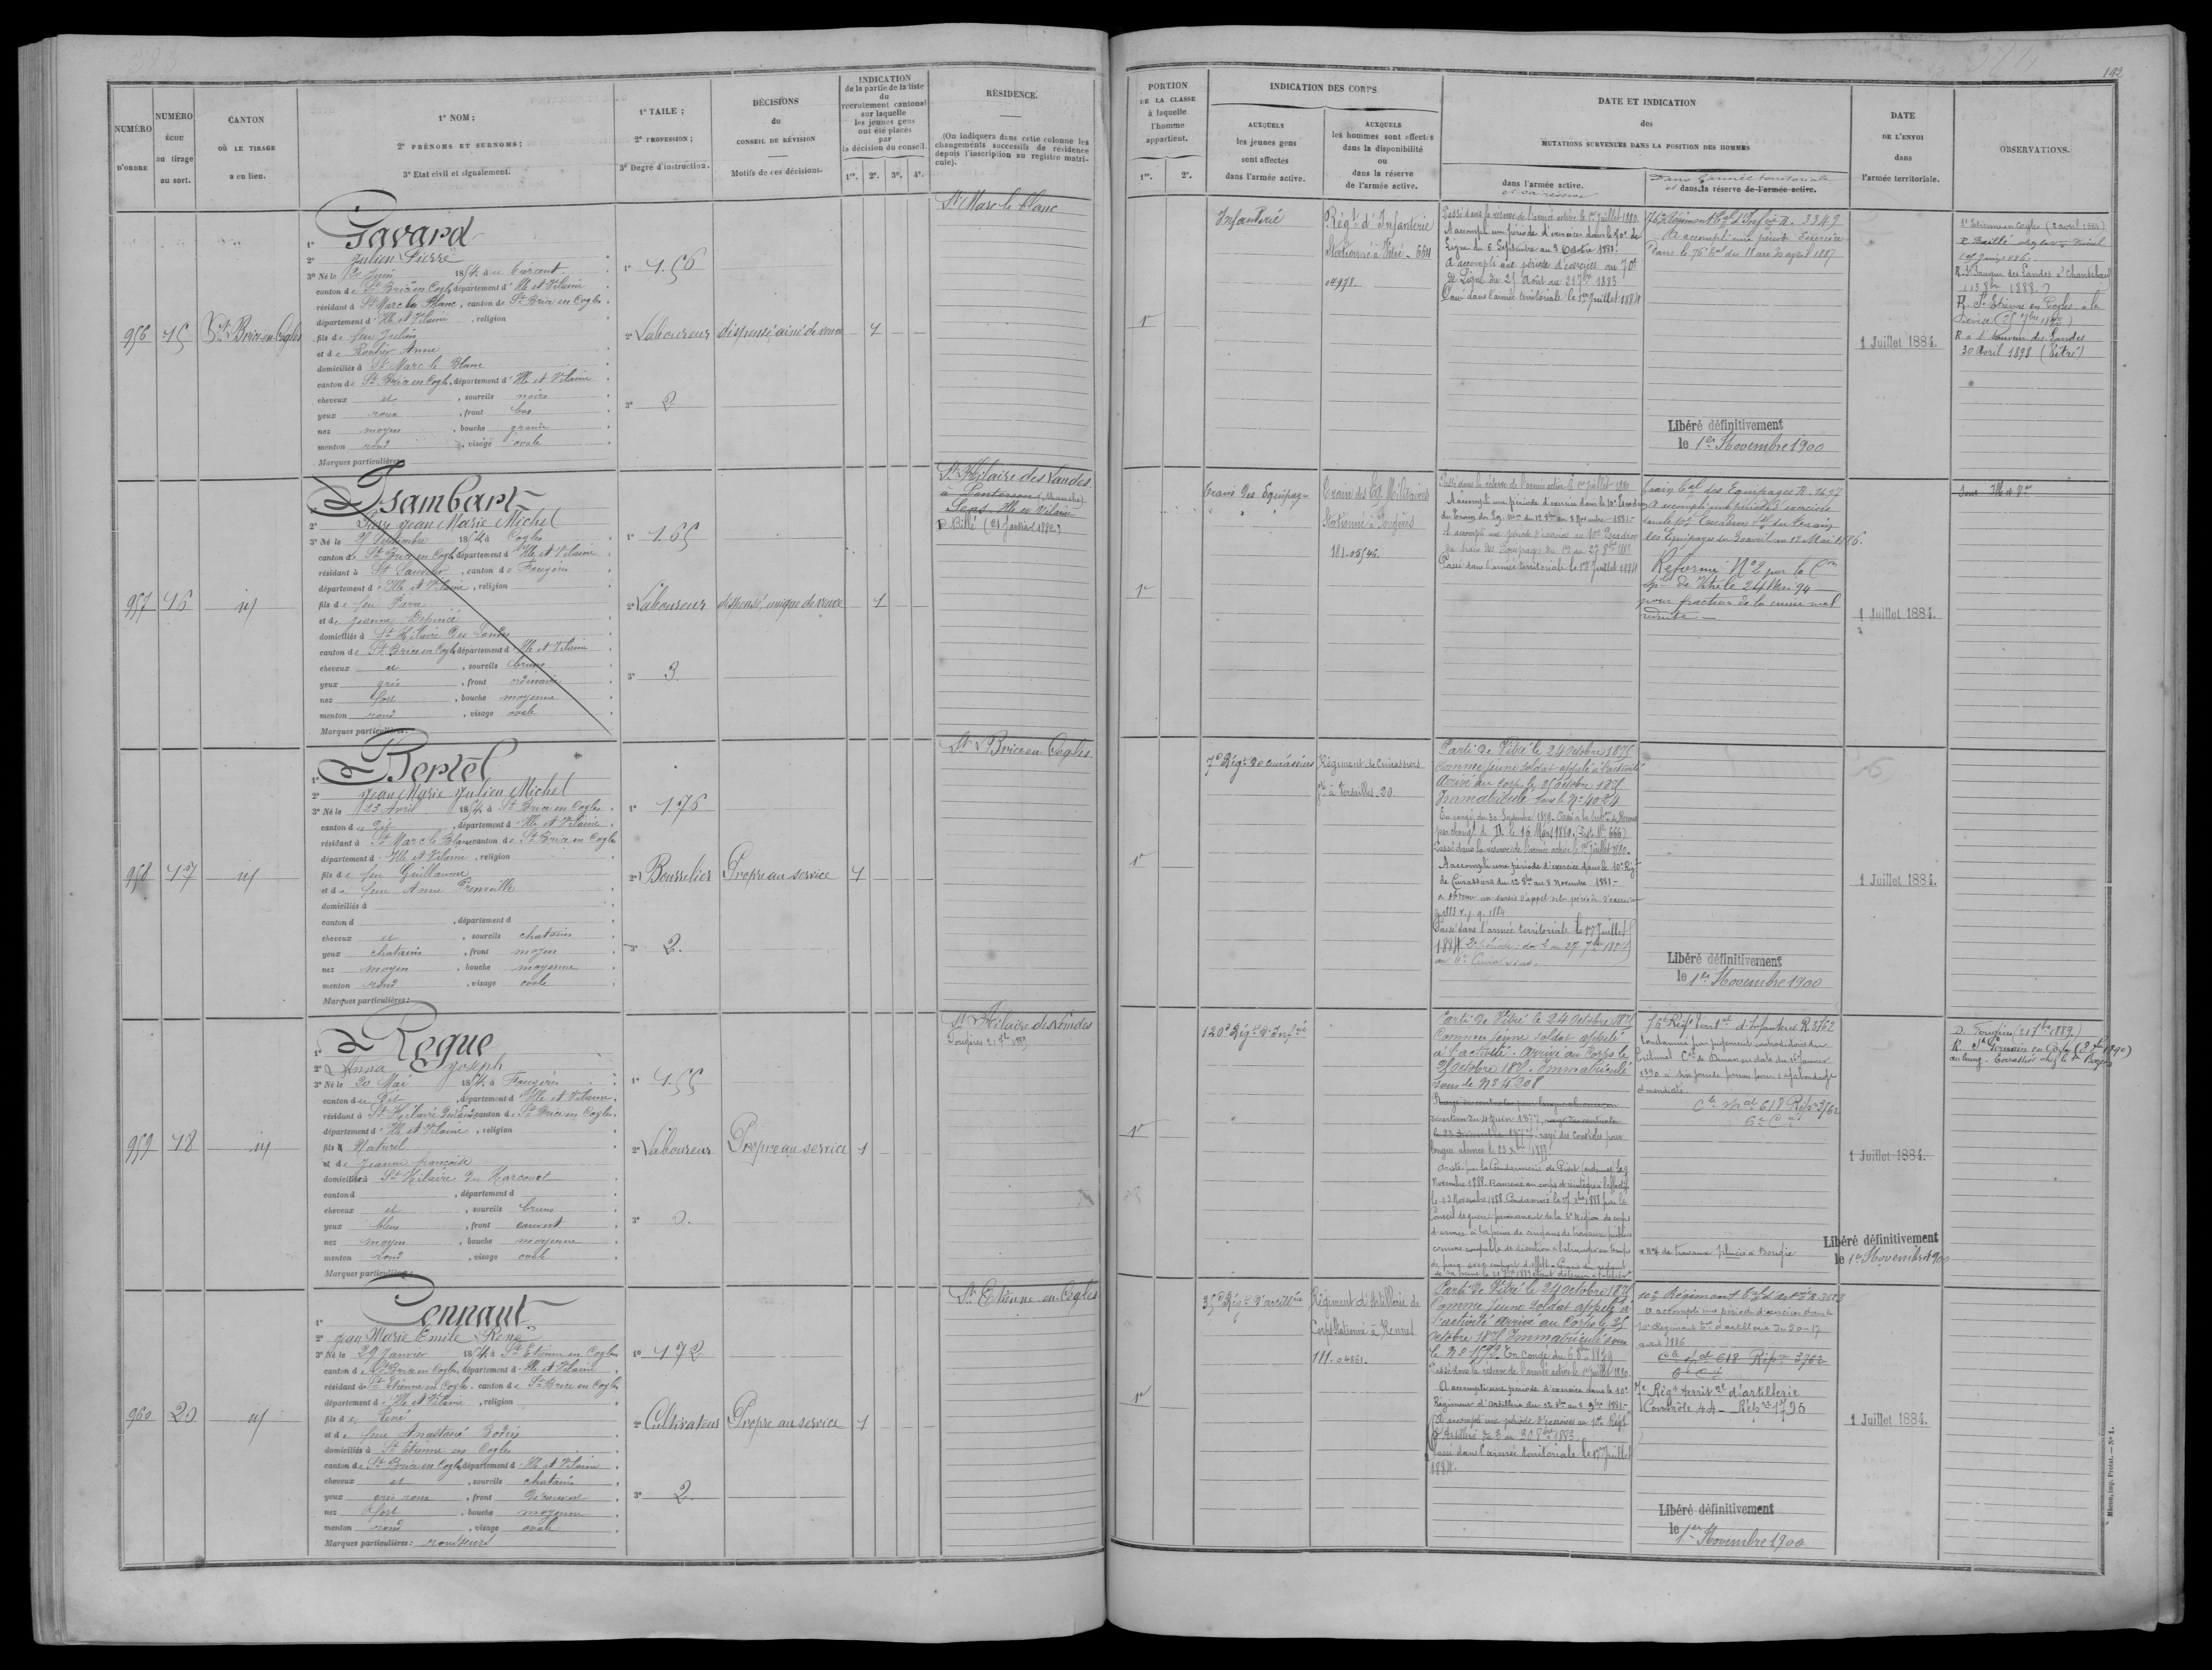 192
NUMÉRO D'ORDRE
NUMÉRO ÉCHU au tirage au sort.
CANTON OÙ LE TIRAGE a eu lieu.
1° NOM;
2° PRÉNOMS ET SURNOMS;
3° Etat civil et signalement.
1° TAILE;
2° PROFESSION;
3° Degré d'instruction.
DÉCISIONS
du
CONSEIL DE RÉVISION
Motifs de ces décisions.
INDICATION
de la partie de la liste
du
recrutement cantonal
sur laquelle
les jeunes gens
ont été placés
par
la décision du conseil
1re. 2e. 3e. 4e.
RÉSIDENCE.
(On indiquera dans cette colonne les
changements successifs de résidence
depuis l'inscription au registre matri-
cule).
PORTION
DE LA CLASSE
à laquelle
l'homme
appartient.
1re. 2e.
INDICATION DES CORPS
AUXQUELS
les jeunes gens
sont affectés
dans l'armée active.
AUXQUELS
les hommes sont affectés
dans la disponibilité
ou
dans la réserve
de l'armée active.
DATE ET INDICATION
des
MUTATIONS SURVENUES DANS LA POSITION DES HOMMES
dans l'armée active.
et sa réserve
Dans l'armée territoriale
et dans la réserve de l'armée active.
DATE
DE L'ENVOI
dans
l'armée territoriale.
OBSERVATIONS.
956
15
St Brice en Cogles
1° Gavard
2° Julien Pierre
3° Né le Juin 1854, à
canton de St Brice en Cogles, département d'Ille et Vilaine
résidant à St Marc le Blanc, canton de St Brice en Cogles
département d'Ille et Vilaine, religion
fils de feu Julien
et de Anne
domiciliés à St Marc le Blanc
canton de St Brice en Cogles, département d'Ille et Vilaine
cheveux et, sourcils noirs
yeux roux, front bas
nez moyen, bouche grande
menton rond, visage ovale
Marques particulières:
1° 1.56
2° Laboureur
3° 2
dispensé, ainé de veuve
1
St Marc le Blanc
1e
Infanterie
Régt d'Infanterie
Stationné à Vitré - 664
Passé dans la réserve de l'armée active le 1er Juillet 1880.
A accompli une période d'exercices dans le 70e de
Ligne du 5 Septembre au 3 Octobre 1881.
A accompli une période d'exercices au 70e
de Ligne du 25 Août au 21 7bre 1883
Passé dans l'armée territoriale le 1er Juillet 1884
76e Régiment tal d'Infrie R. 3349
A accompli une période d'exercices
Dans le 76e tal du 18 au 30 avril 1887
Libéré définitivement
le 1er Novembre 1900
1 Juillet 1884.
St Etienne en Cogles (2 avril 1884)
1888
R. St Etienne en Cogles à la
30 Avril 1898 (Vitré)
957
16
id
1° Isambart
2° Pierre Jean Marie Michel
3° Né le 21 Septembre 1854, à Cogles
canton de St Brice en Cogles, département d'Ille et Vilaine
résidant à St Sauveur, canton de Fougères
département d'Ille et Vilaine, religion
fils de feu Pierre
et de Jeanne Dépincé
domiciliés à St Hilaire des Landes
canton de St Brice en Cogles, département d'Ille et Vilaine
cheveux et, sourcils bruns
yeux gris, front ordinaire
nez fort, bouche moyenne
menton rond, visage ovale
Marques particulières:
1° 1.65
2° Laboureur
3° 3.
dispensé, unique de veuve
1
St Hilaire des Landes
à Pontorson (Manche)
Sens Ille et Vilaine
D. Billé (21 Janvier 1882)
1e
Train des Equipages
Train des Eq. Militaires
Stationné à Fougères
181.05/46.
Passé dans la réserve de l'armée active le 1er Juillet 1880
A accompli une période d'exercice dans le 10e Escadron
du Train des Eq. du 12 8bre au 8 Novembre 1881.
Passé dans l'armée territoriale le 1er Juillet 1884
Train tal des Equipages R. 1697
A accompli une période d'exercices
dans le 10e Escadron tal du Train
des Equipages du 30 avril au 12 Mai 1886.
Réformé N° 2 par la Con
sple de Vitré le 24 Mai 94
pour fracture de la cuisse mal
réduite
1 Juillet 1884.
958
17
id
1° Bertel
2° Jean Marie Julien Michel
3° Né le 13 Avril 1854, à St Brice en Cogles
canton de Dit, département d'Ille et Vilaine
résidant à St Marc le Blanc, canton de St Brice en Cogles
département d'Ille et Vilaine, religion
fils de feu Guillaume
et de feue Anne
domiciliés à
canton d, département d
cheveux et, sourcils chatains
yeux chatains, front moyen
nez moyen, bouche moyenne
menton rond, visage ovale
Marques particulières:
1° 1.76
2° Bourrelier
3° 2.
Propre au service
1
St Brice en Cogles
1e
7e Régt de cuirassiers
Régiment de Cuirassiers
Sté à Versailles. 20.
Parti de Vitré le 24 Octobre 1875
Comme jeune soldat appelé à l'activité
Arrivé au corps le 25 octobre 1875
Immatriculé sous le N° 4024
En congé du 30 Septembre 1879.
par changt de D. le 16 Mars 1880.
Passé dans la réserve de l'armée active le 1er Juillet 1880.
A accompli une période d'exercice dans le 10e Régt
de Cuirassiers du 12 8bre au 8 Novembre 1881.
Passé dans l'armée territoriale le 1er Juillet
1884.
Libéré définitivement
le 1er Novembre 1900
1 Juillet 1884.
959
18
id
1° Reque
2° Anna Joseph
3° Né le 20 Mai 1854, à Fougères
canton de Dit, département d'Ille et Vilaine
résidant à St Hilaire des Landes, canton de St Brice en Cogles
département d'Ille et Vilaine, religion
fils Naturel
et de Jeanne françoise
domiciliée à St Hilaire du Harcouet
canton d, département d
cheveux et, sourcils bruns
yeux bleus, front couvert
nez moyen, bouche moyenne
menton rond, visage ovale
Marques particulières:
1° 1.55
2° Laboureur
3° 0.
Propre au service
1
St Hilaire des Landes
Fougères 21 7bre 1889
1e
120e Régt d'Infrie
Parti de Vitré le 24 Octobre 1875
Comme jeune soldat appelé
à l'activité. Arrivé au Corps le
25 Octobre 1875. Immatriculé
sous le N° 4208
rayé des contrôles pour
longue absence le 23
Arrêté par la Gendarmerie de Givet
Novembre 1888. Ramené au corps et réintégré à l'effectif
le 13 Novembre 1888. Condamné le 1888 par le
Conseil de guerre permanent de la 6e Région de corps
d'armée à la peine de cinq ans de travaux publics
comme coupable de désertion à l'étranger en temps
de paix avec emport d'effets
76e Régt territal d'Infanterie R. 3762
Condamné par jugement contradictoire du
tribunal Cel de Dinan en date du 16 janvier
1890 à six jours de prison pour vagabondage
et mendicité
Cle spal 618 Répre 3762
6e Cie
Libéré définitivement
le 1er Novembre 1900
1 Juillet 1884.
D. Fougères (21 7bre 1889)
R. St Germain en Cogles
960
20
id
1° Pennant
2° Jean Marie Emile René
3° Né le 29 Janvier 1854, à St Etienne en Cogles
canton de St Brice en Cogles, département d'Ille et Vilaine
résidant à St Etienne en Cogles, canton de St Brice en Cogles
département d'Ille et Vilaine, religion
fils de René
et de feue Anastasie
domiciliés à St Etienne en Cogles
canton de St Brice en Cogles, département d'Ille et Vilaine
cheveux et, sourcils chatains
yeux gris roux, front découvert
nez fort, bouche moyenne
menton rond, visage ovale
Marques particulières: rousseurs
1° 1.72
2° Cultivateur
3° 2.
Propre au service
1
St Etienne en Cogles
1e
35e Régt d'artillerie
Régiment d'Artillerie de
Corps Stationné à Rennes
111.04551.
Parti de Vitré le 24 octobre 1875
Comme jeune soldat appelé à
l'activité arrivé au Corps le 25
Octobre 1875 Immatriculé sous
le N° 1572. En congé du 6 8bre 1879
Passé dans la réserve de l'armée active le 1er Juillet 1880.
A accompli une période d'exercice dans le 10e
Régiment d'Artillerie du 12 8bre au 8 9bre 1881.
A accompli une période d'exercices au 10e Régt
d'Artillerie du 3 au 30 8bre 1883.
Passé dans l'armée territoriale le 1er Juillet
1884.
10e Régiment
A accompli une période d'exercices dans le
10e Régiment d'artillerie
avril 1886
Cle spal 618 Répre 3762
6e Cie
7e Régt territal d'artillerie
Contrôle 44 Répre 1795
Libéré définitivement
le 1er Novembre 1900
1 Juillet 1884.
Mâcon, imp. Protat. — N° 1.